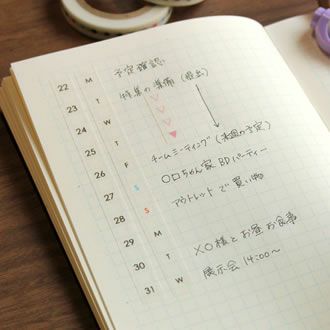 22 M 予定確認
23 T 特集の準備 (提出)
24 W
25 T
26 F チームミーティング (来週の予定)
27 S ○口ちゃん家 BDパーティー
28 S アウトレットで買い物
29 M
30 T ×○様とお昼お食事
31 W 展示会 14:00〜